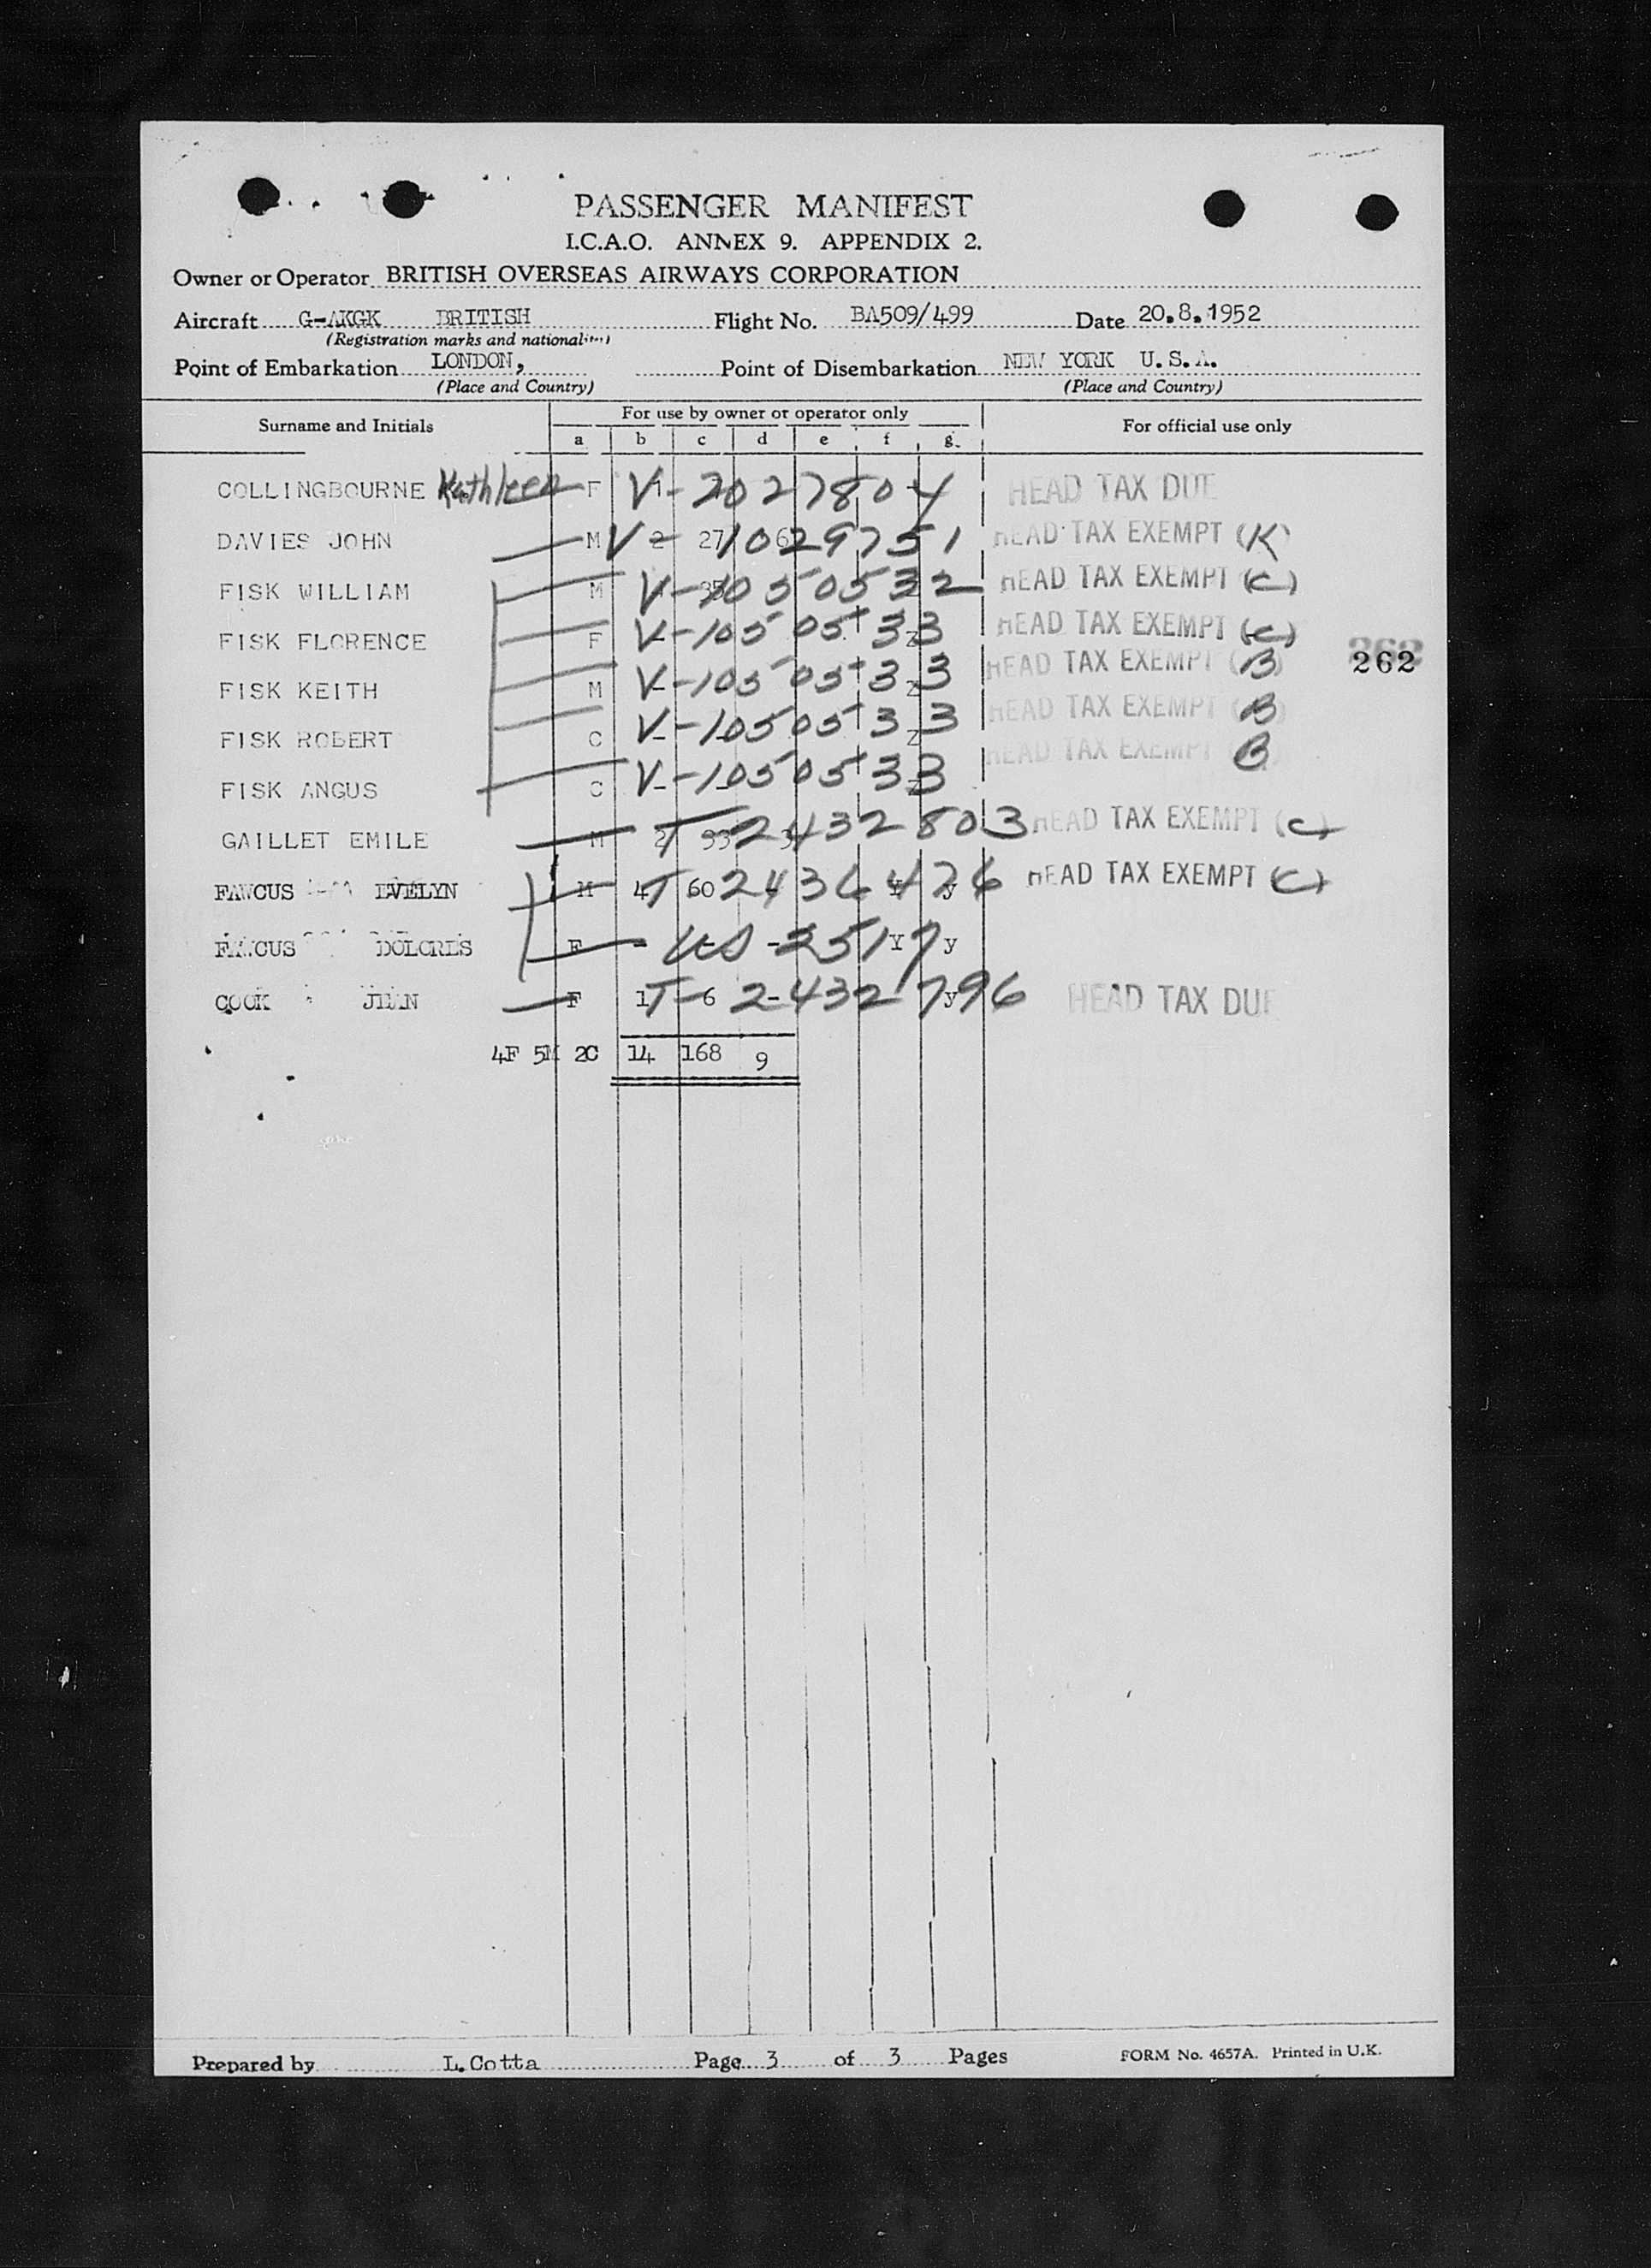 PASSENGER MANIFEST
I.C.A.O. ANNEX 9. APPENDIX 2.
Owner or Operator BRITISH OVERSEAS AIRWAYS CORPORATION
Aircraft G-AKGK BRITISH Flight No. BA509/499 Date 20.8.1952
(Registration marks and nationality)
Point of Embarkation LONDON, Point of Disembarkation NEW YORK U.S.A.
(Place and Country) (Place and Country)
Surname and Initials For use by owner or operator only For official use only
a b c d e f g.
COLLINGBOURNE Kathleen F V-2027804 HEAD TAX DUE
DAVIES JOHN M 2 27 6 V-1029751 HEAD TAX EXEMPT (K)
FISK WILLIAM M V-1050532 HEAD TAX EXEMPT (C)
FISK FLORENCE F V-1050533 HEAD TAX EXEMPT (C)
FISK KEITH M V-1050533 HEAD TAX EXEMPT (B)
262
FISK ROBERT C V-1050533 HEAD TAX EXEMPT (B)
FISK ANGUS C V-1050533 HEAD TAX EXEMPT (B)
GAILLET EMILE M 2 33 3 T-2432803 HEAD TAX EXEMPT (C)
FAWCUS EVELYN M 4 60 T 2436476 y HEAD TAX EXEMPT (C)
FAWCUS DOLORES F - - - US-2517 Y y
COOK JEAN F 1 6 - T-2432796 y HEAD TAX DUE
4F 5M 2C 14 168 9
Prepared by L.Cotta Page 3 of 3 Pages FORM No. 4657A. Printed in U.K.